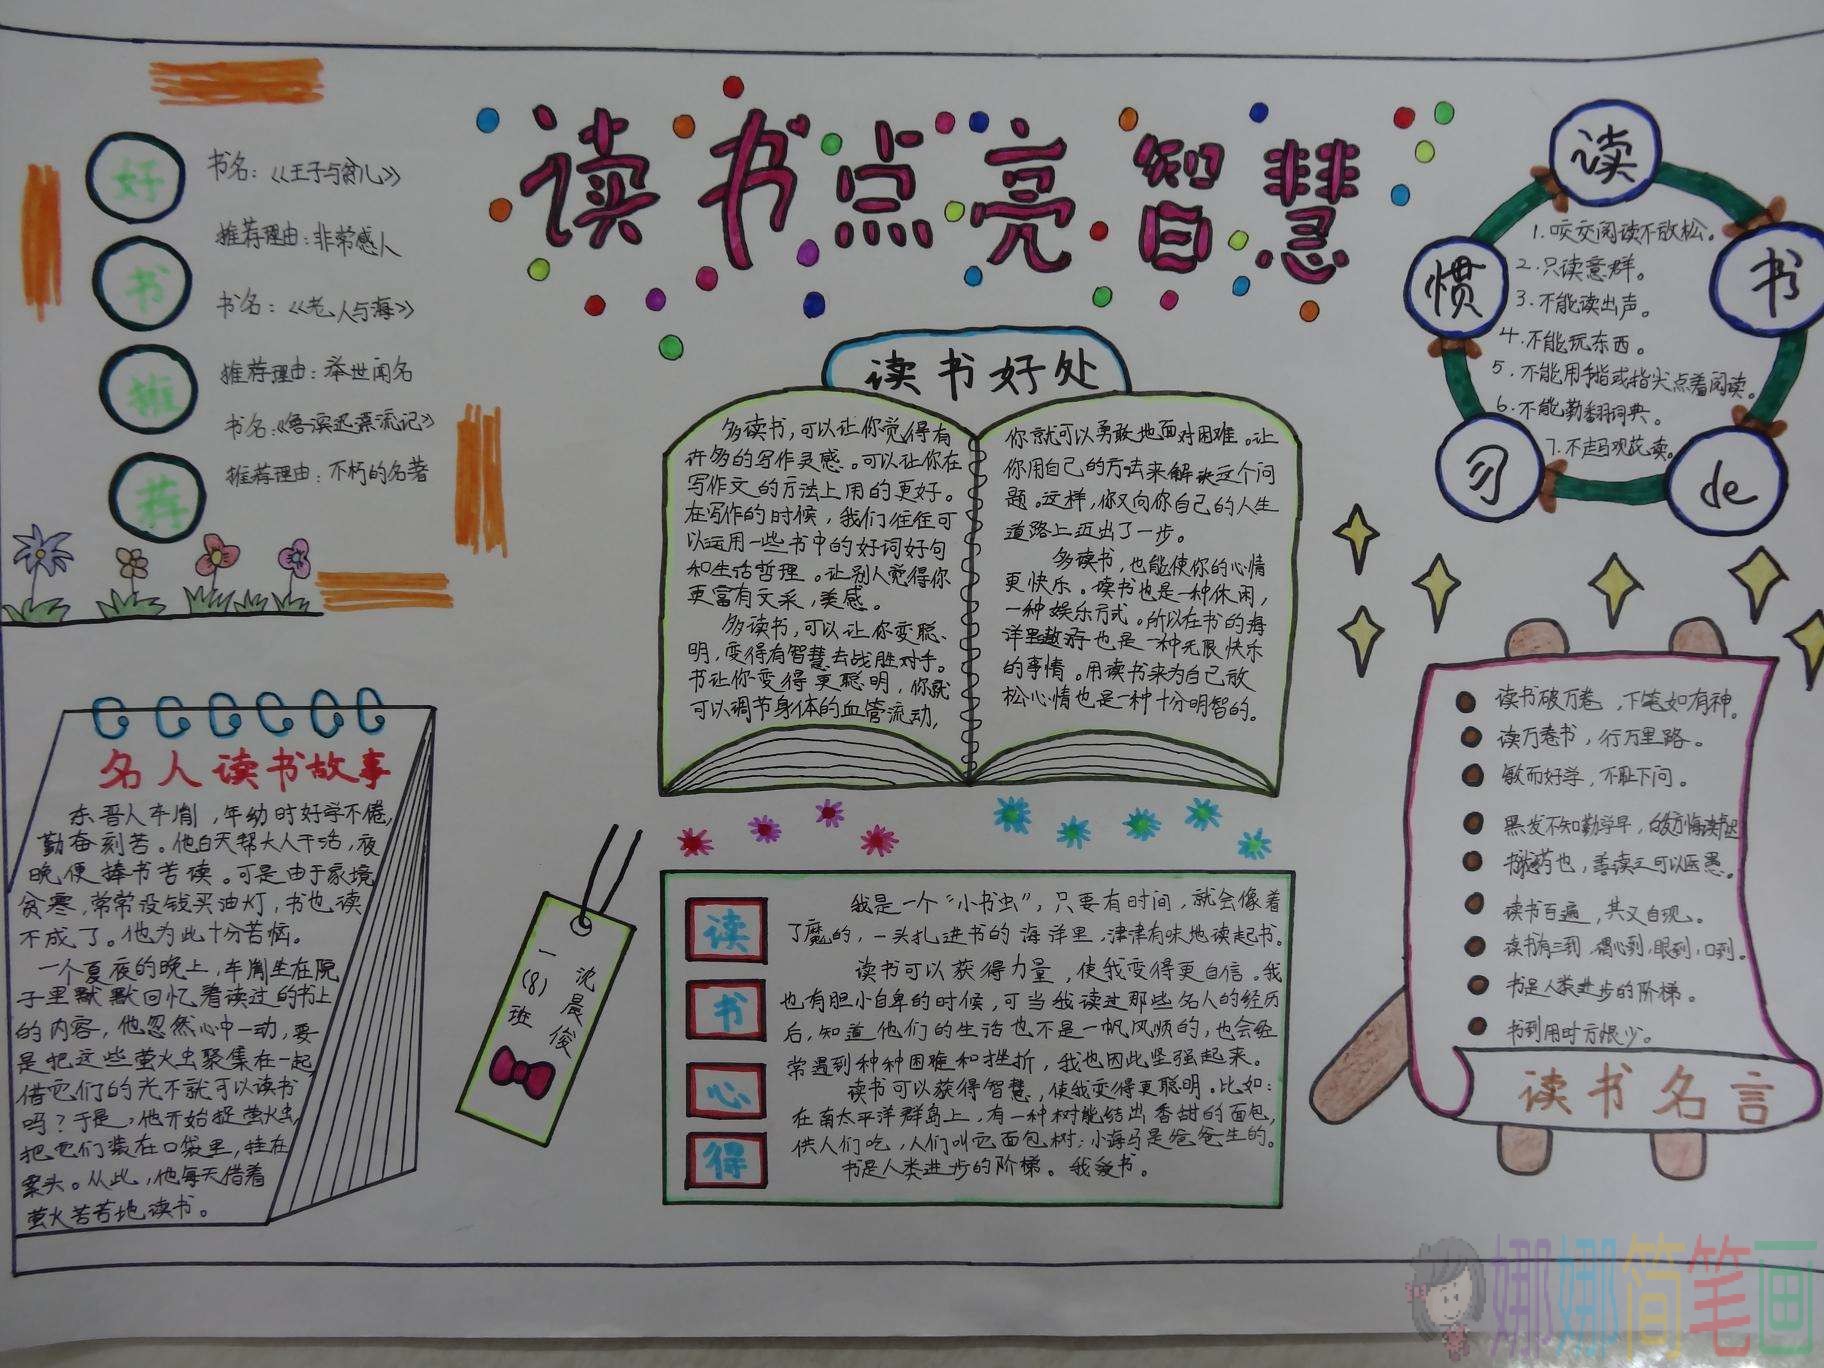 读书点亮智慧
好书推荐
书名：《王子与贫儿》
推荐理由：非常感人
书名：《老人与海》
推荐理由：举世闻名
书名：《鲁滨迅漂流记》
推荐理由：不朽的名著
读书好处
多读书，可以让你觉得有
许多的写作灵感。可以让你在
写作文的方法上用的更好。
在写作的时候，我们往往可
以运用一些书中的好词好句
和生活哲理。让别人觉得你
更富有文采，美感。
多读书，可以让你变聪、
明，变得有智慧去战胜对手。
书让你变得更聪明，你就
可以调节身体的血管流动，
你就可以勇敢地面对困难。让
你用自己的方法来解决这个问
题。这样，你又向你自己的人生
道路上迈出了一步。
多读书，也能使你的心情
更快乐。读书也是一种休闲，
一种娱乐方式。所以在书的海
洋里遨游也是一种无限快乐
的事情。用读书来为自己放
松心情也是一种十分明智的。
读书de习惯
1.咬交阅读不放松。
2.只读意群。
3.不能读出声。
4.不能玩东西。
5.不能用手指或指尖点着阅读。
6.不能勤翻词典。
7.不走马观花读。
名人读书故事
东晋人车胤，年幼时好学不倦，
勤奋刻苦。他白天帮大人干活，夜
晚便捧书苦读。可是由于家境
贫寒，常常没钱买油灯，书也读
不成了。他为此十分苦恼。
一个夏夜的晚上，车胤坐在院
子里默默回忆着读过的书上
的内容，他忽然心中一动，要
是把这些萤火虫聚集在一起，
借它们的光不就可以读书
吗？于是，他开始捉萤火虫，
把它们装在口袋里，挂在
案头。从此，他每天借着
萤火苦苦地读书。
一(8)班
沈晨俊
读书心得
我是一个“小书虫”，只要有时间，就会像着
了魔的，一头扎进书的海洋里，津津有味地读起书。
读书可以获得力量，使我变得更自信。我
也有胆小自卑的时候，可当我读过那些名人的经历
后，知道他们的生活也不是一帆风顺的，也会经
常遇到种种困难和挫折，我也因此坚强起来。
读书可以获得智慧，使我变得更聪明。比如：
在南太平洋群岛上，有一种树能结出香甜的面包，
供人们吃，人们叫它面包树；小海马是爸爸生的。
书是人类进步的阶梯。我爱书。
读书破万卷，下笔如有神。
读万卷书，行万里路。
敏而好学，不耻下问。
黑发不知勤学早，白首方悔读书迟
书犹药也，善读之可以医愚。
读书百遍，其义自现。
读书有三到，谓心到，眼到，口到。
书是人类进步的阶梯。
书到用时方恨少。
读书名言
娜娜简笔画